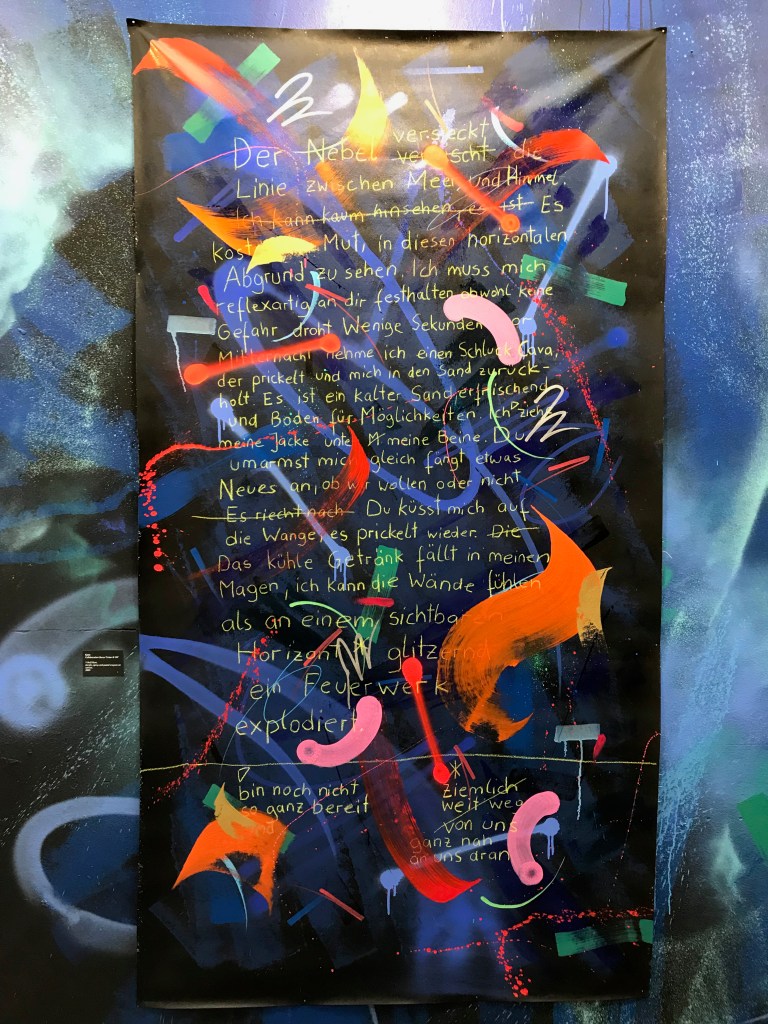 versteckt
Der Nebel verwischt die
Linie zwischen Meer und Himmel.
Ich kann kaum hinsehen, es ist Es
kostet Mut, in diesen horizontalen
Abgrund zu sehen. Ich muss mich
reflexartig an dir festhalten obwohl keine
Gefahr droht Wenige Sekunden vor
Mitternacht nehme ich einen Schluck Cava,
der prickelt und mich in den Sand zurück-
holt Es ist ein kalter Sand erfrischend
und Boden für Möglichkeiten. Ich ziehe
meine Jacke unter meine Beine. Du
umarmst mich gleich fängt etwas
Neues an, ob wir wollen oder nicht
Es riecht nach Du küsst mich auf
die Wange, es prickelt wieder. Die
Das kühle Getränk fällt in meinen
Magen, ich kann die Wände fühlen
als an einem sichtbaren
Horizont * glitzernd
ein Feuerwerk
explodiert.
bin noch nicht
so ganz bereit
*
ziemlich
weit weg
von uns
ganz nah
an uns dran